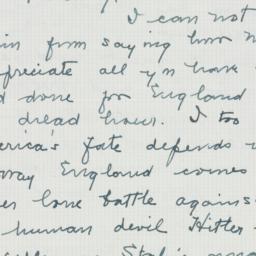 I can not
in from saying how m
preciate all yr have
d done for England
dread hour. I too
erica's fate depends u
way England comes
er lone battle agains
human devil Hitler